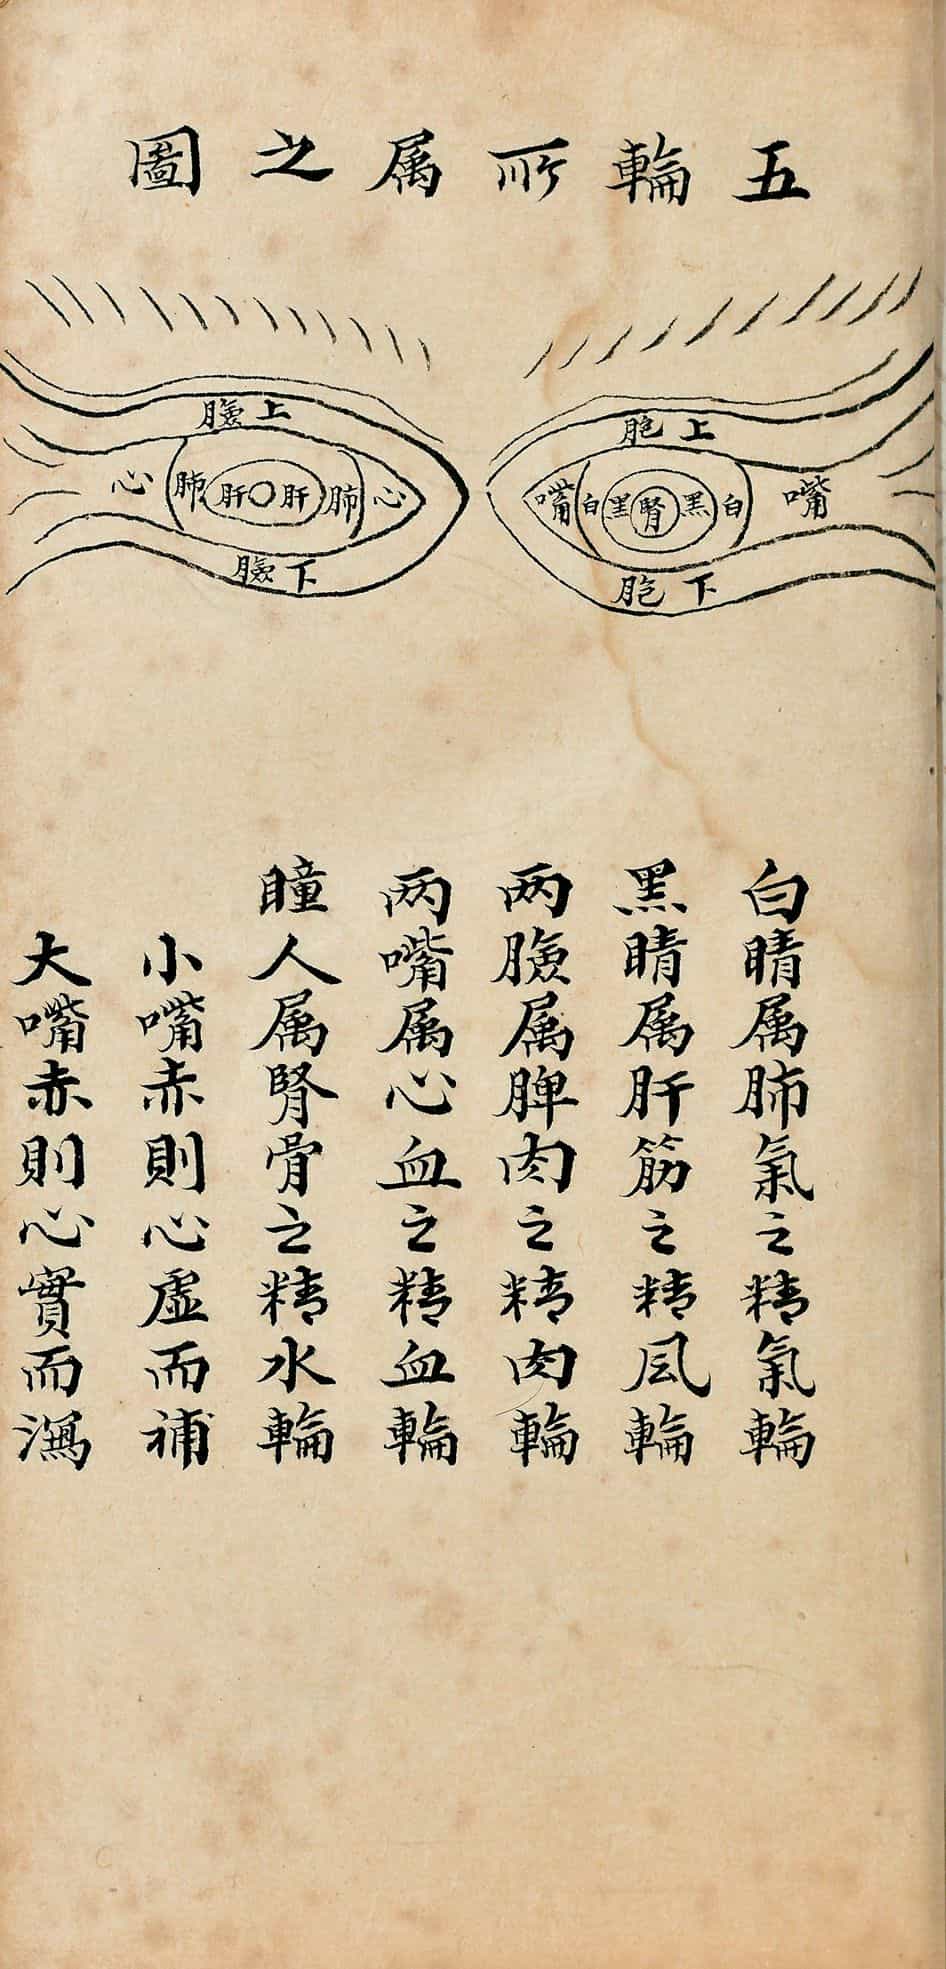 五輪所属之圖
上胞
嘴白黑腎黑白嘴
下胞
上臉
心肺肝肝肺心
下臉
白睛属肺氣之精氣輪
黑睛属肝筋之精風輪
两臉属脾肉之精肉輪
两嘴属心血之精血輪
瞳人属腎骨之精水輪
小嘴赤則心虛而補
大嘴赤則心實而瀉